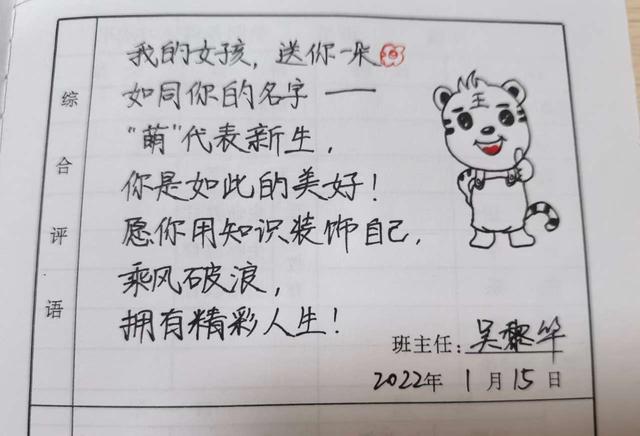 综合评语
我的女孩，送你一朵
如同你的名字——
"萌"代表新生，
你是如此的美好！
愿你用知识装饰自己，
乘风破浪，
拥有精彩人生！
王
班主任：吴黎华
2022年1月15日